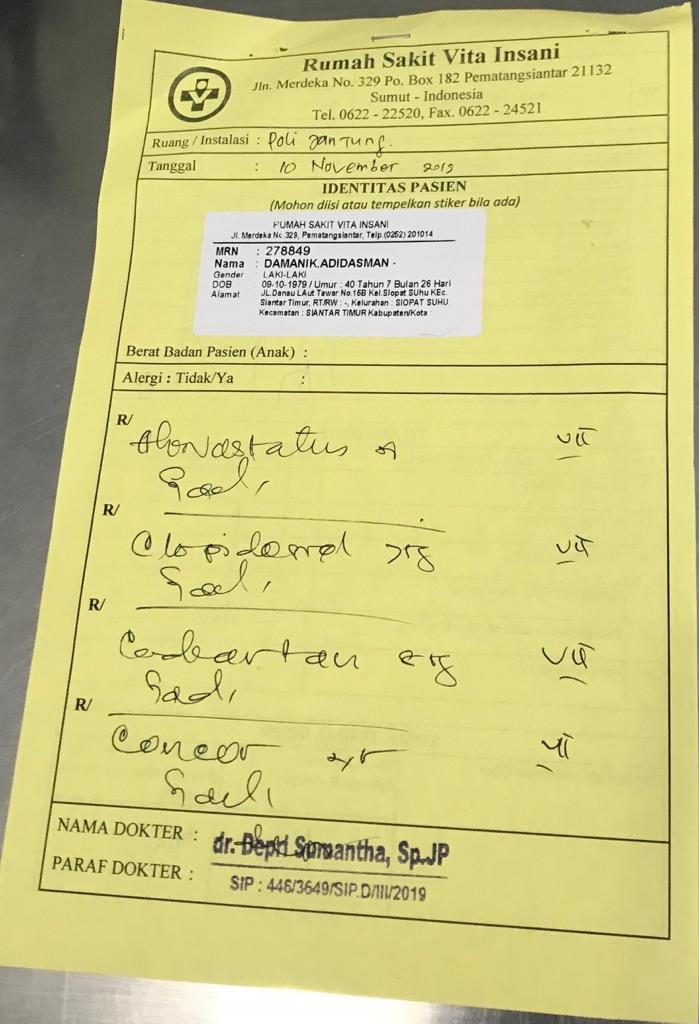 Rumah Sakit Vita Insani
Jln. Merdeka No. 329 Po. Box 182 Pematangsiantar 21132
Sumut - Indonesia
Tel. 0622 - 22520, Fax. 0622 - 24521
Ruang / Instalasi : Poli Jantung.
Tanggal : 10 November 2019
IDENTITAS PASIEN
(Mohon diisi atau tempelkan stiker bila ada)
RUMAH SAKIT VITA INSANI
Jl. Merdeka No. 329, Pematangsiantar, Telp.(0252) 201014
MRN : 278849
Nama : DAMANIK.ADIDASMAN -
Gender : LAKI-LAKI
DOB : 09-10-1979 / Umur : 40 Tahun 7 Bulan 26 Hari
Alamat : JL.Danau LAut Tawar No.15B Kel.Siopat SUhu KEc.
Siantar Timur, RT/RW : -, Kelurahan : SIOPAT SUHU,
Kecamatan : SIANTAR TIMUR Kabupaten/Kota :
Berat Badan Pasien (Anak) :
Alergi : Tidak/Ya :
R/
VII
R/
VII
R/
VII
R/
Concor
VII
NAMA DOKTER :
dr. Depri Sumantha, Sp.JP
PARAF DOKTER :
SIP : 446/3649/SIP.D/III/2019